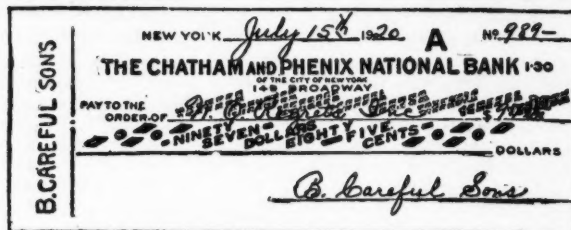 B. CAREFUL SON'S
NEW YORK July 15th 1920 A No 989-
THE CHATHAM AND PHENIX NATIONAL BANK 1-30
OF THE CITY OF NEW YORK
149 BROADWAY
PAY TO THE
ORDER OF
NINETY SEVEN DOLLARS EIGHTY FIVE CENTS
DOLLARS
B. Careful Sons